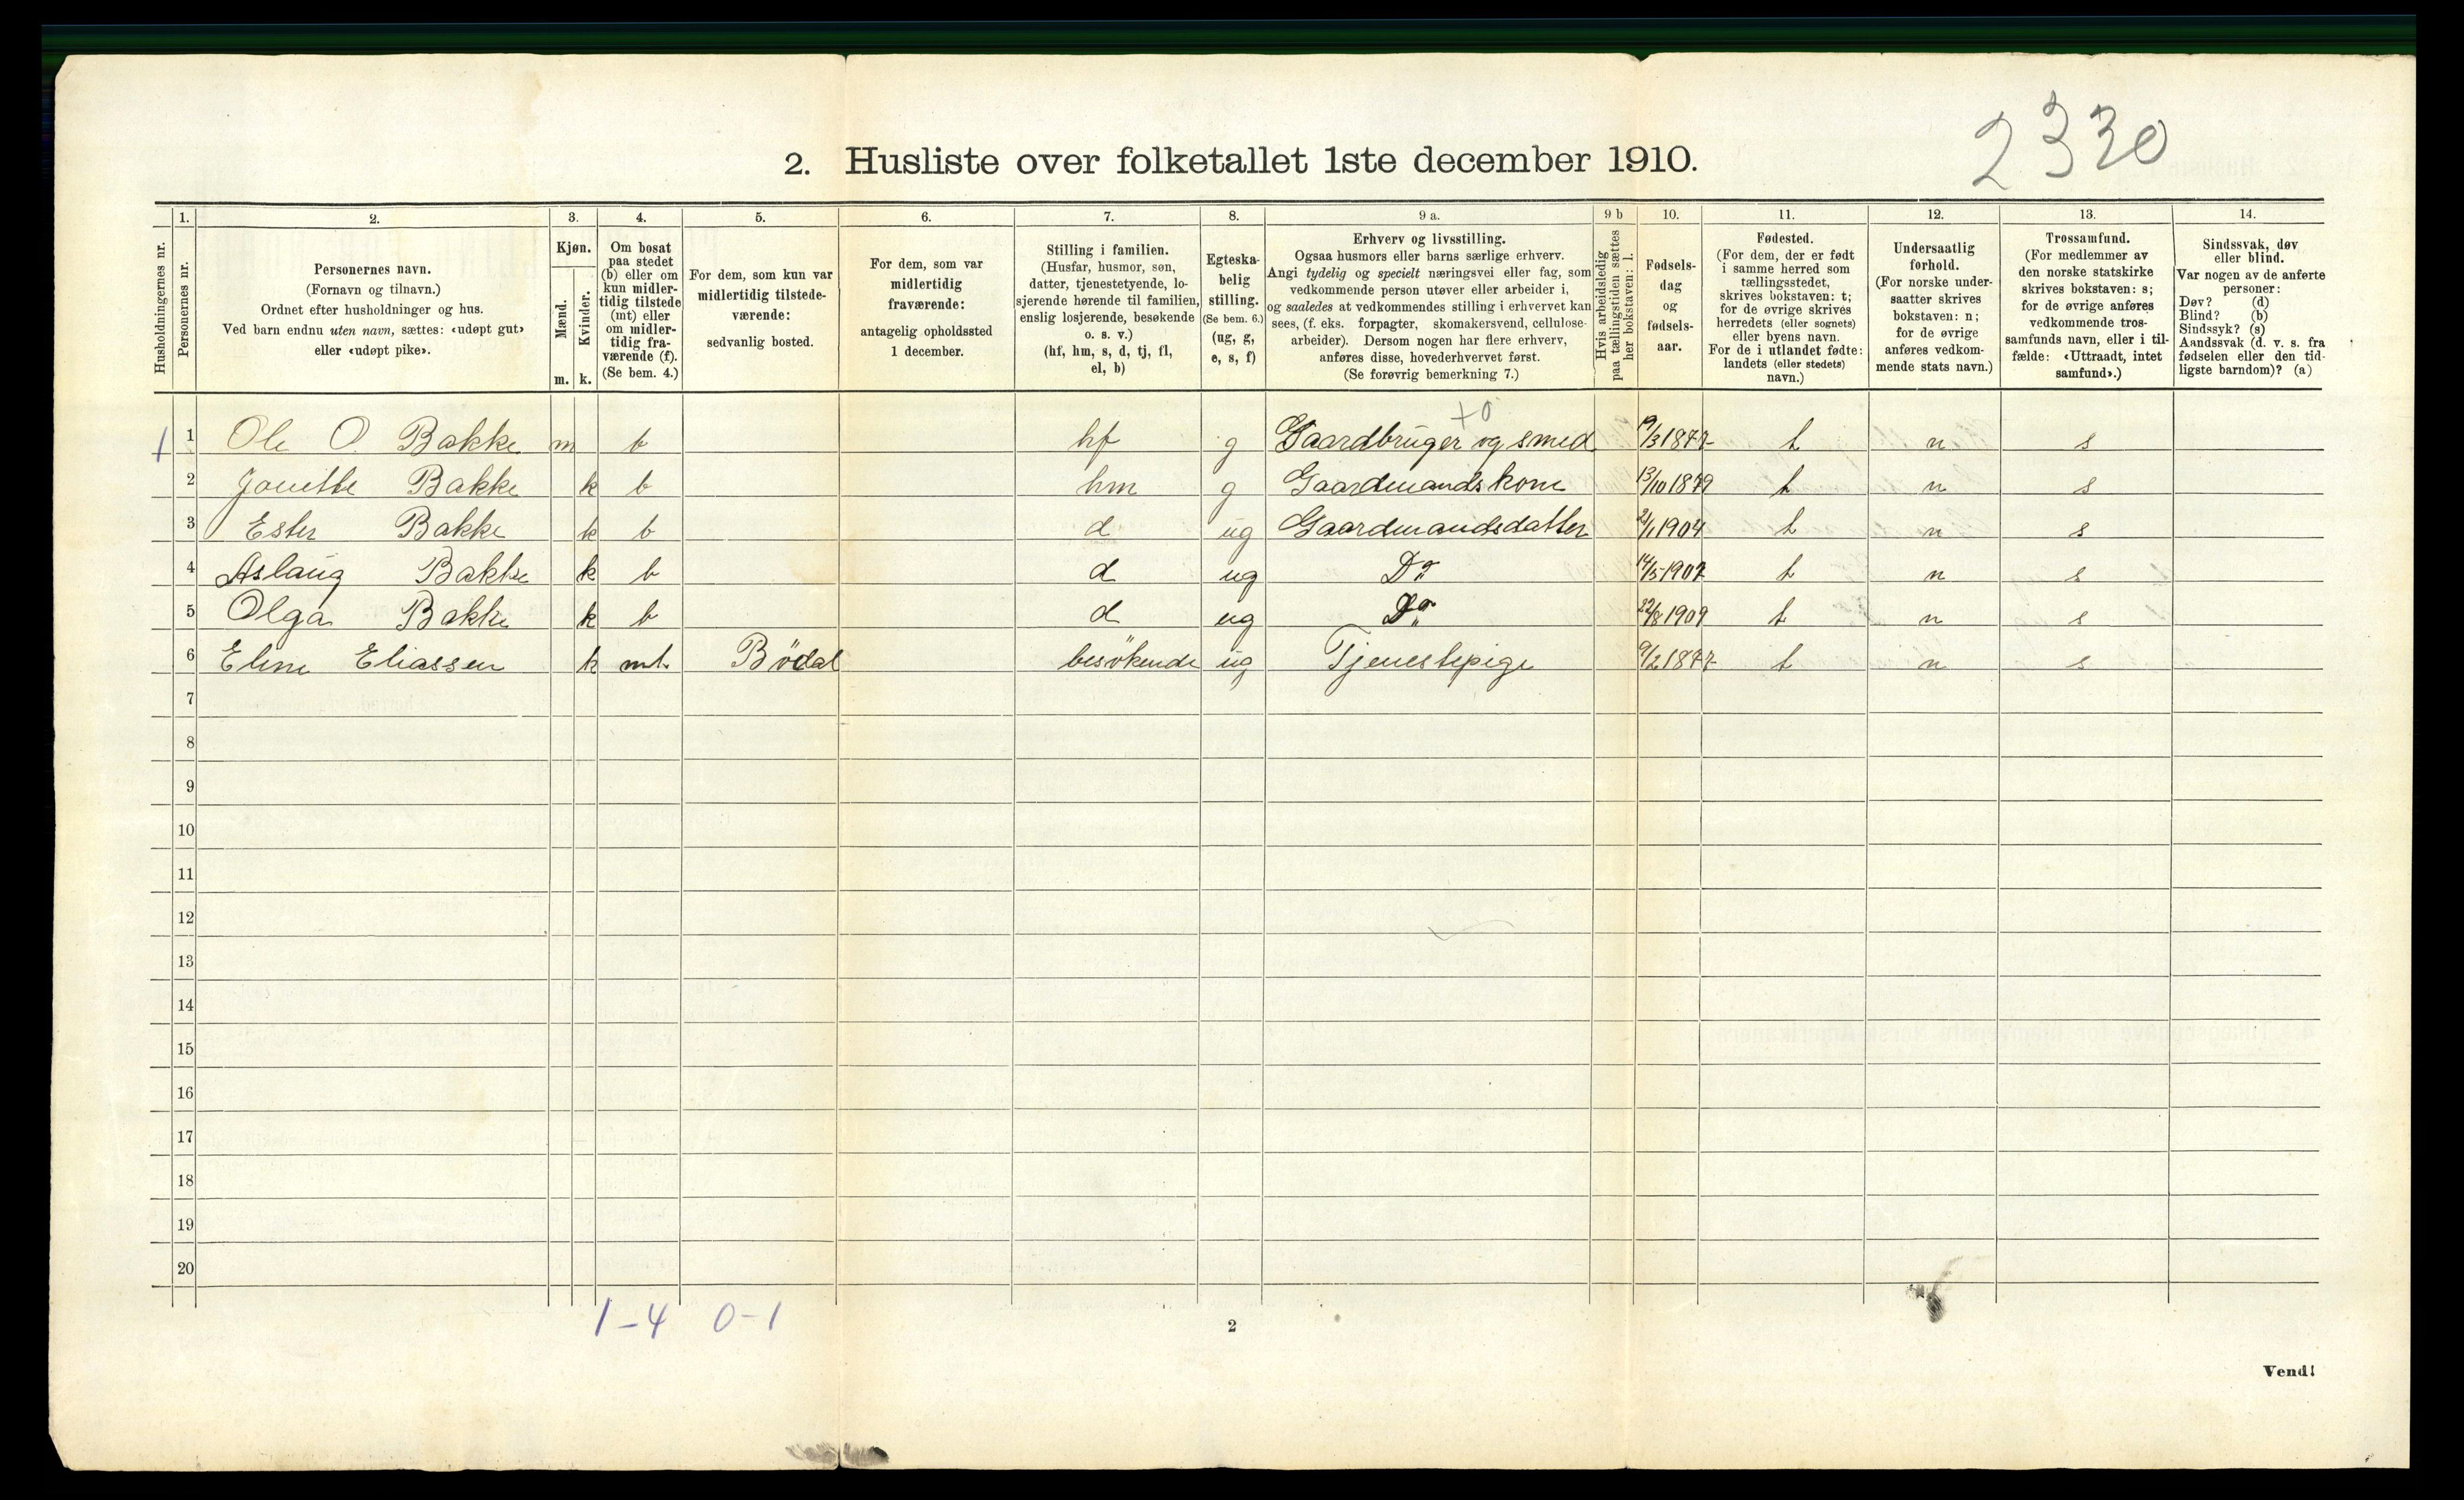 2330
2. Husliste over folketallet 1ste december 1910.
Husholdningernes nr.
1.
Personernes nr.
2.
Personernes navn.
(Fornavn og tilnavn.)
Ordnet efter husholdninger og hus.
Ved barn endnu uten navn, sættes: «udøpt gut»
eller «udøpt pike».
3.
Kjøn.
Mænd.
Kvinder.
m. k.
4.
Om bosat
paa stedet
(b) eller om
kun midler-
tidig tilstede
(mt) eller
om midler-
tidig fra-
værende (f).
(Se bem. 4.)
5.
For dem, som kun var
midlertidig tilstede-
værende:
sedvanlig bosted.
6.
For dem, som var
midlertidig
fraværende:
antagelig opholdssted
1 december.
7.
Stilling i familien.
(Husfar, husmor, søn,
datter, tjenestetyende, lo-
sjerende hørende til familien,
enslig losjerende, besøkende
o. s. v.)
(hf, hm, s, d, tj, fl,
el, b)
8.
Egteska-
belig
stilling.
(Se bem. 6.)
(ug, g,
e, s, f)
9 a.
Erhverv og livsstilling.
Ogsaa husmors eller barns særlige erhverv.
Angi tydelig og specielt næringsvei eller fag, som
vedkommende person utøver eller arbeider i,
og saaledes at vedkommendes stilling i erhvervet kan
sees, (f. eks. forpagter, skomakersvend, cellulose-
arbeider). Dersom nogen har flere erhverv,
anføres disse, hovederhvervet først.
(Se forøvrig bemerkning 7.)
9 b
Hvis arbeidsledig
paa tællingstiden sættes
her bokstaven: l.
10.
Fødsels-
dag
og
fødsels-
aar.
11.
Fødested.
(For dem, der er født
i samme herred som
tællingsstedet,
skrives bokstaven: t;
for de øvrige skrives
herredets (eller sognets)
eller byens navn.
For de i utlandet fødte:
landets (eller stedets)
navn.)
12.
Undersaatlig
forhold.
(For norske under-
saatter skrives
bokstaven: n;
for de øvrige
anføres vedkom-
mende stats navn.)
13.
Trossamfund.
(For medlemmer av
den norske statskirke
skrives bokstaven: s;
for de øvrige anføres
vedkommende tros-
samfunds navn, eller i til-
fælde: «Uttraadt, intet
samfund».)
14.
Sindssvak, døv
eller blind.
Var nogen av de anførte
personer:
Døv? (d)
Blind? (b)
Sindssyk? (s)
Aandssvak (d. v. s. fra
fødselen eller den tid-
ligste barndom)? (a)
+0
1 1 Ole O. Bakke m b hf g Gaardbruger og smed t n s
2 Bakke k b hm g Gaardmandskone 13/10 1879 t n s
3 Ester Bakke k b d ug Gaardmandsdatter 21/1 1904 t n s
4 Aslaug Bakke k b d ug Do 14/5 1907 t n s
5 Olga Bakke k b d ug Do 22/8 1909 t n s
6 Eline Eliassen k mt. Bödal besökende ug Tjenestepige 9/2 1877 t n s
7
8
9
10
11
12
13
14
15
16
17
18
19
20
1-4 0-1
2
Vend!